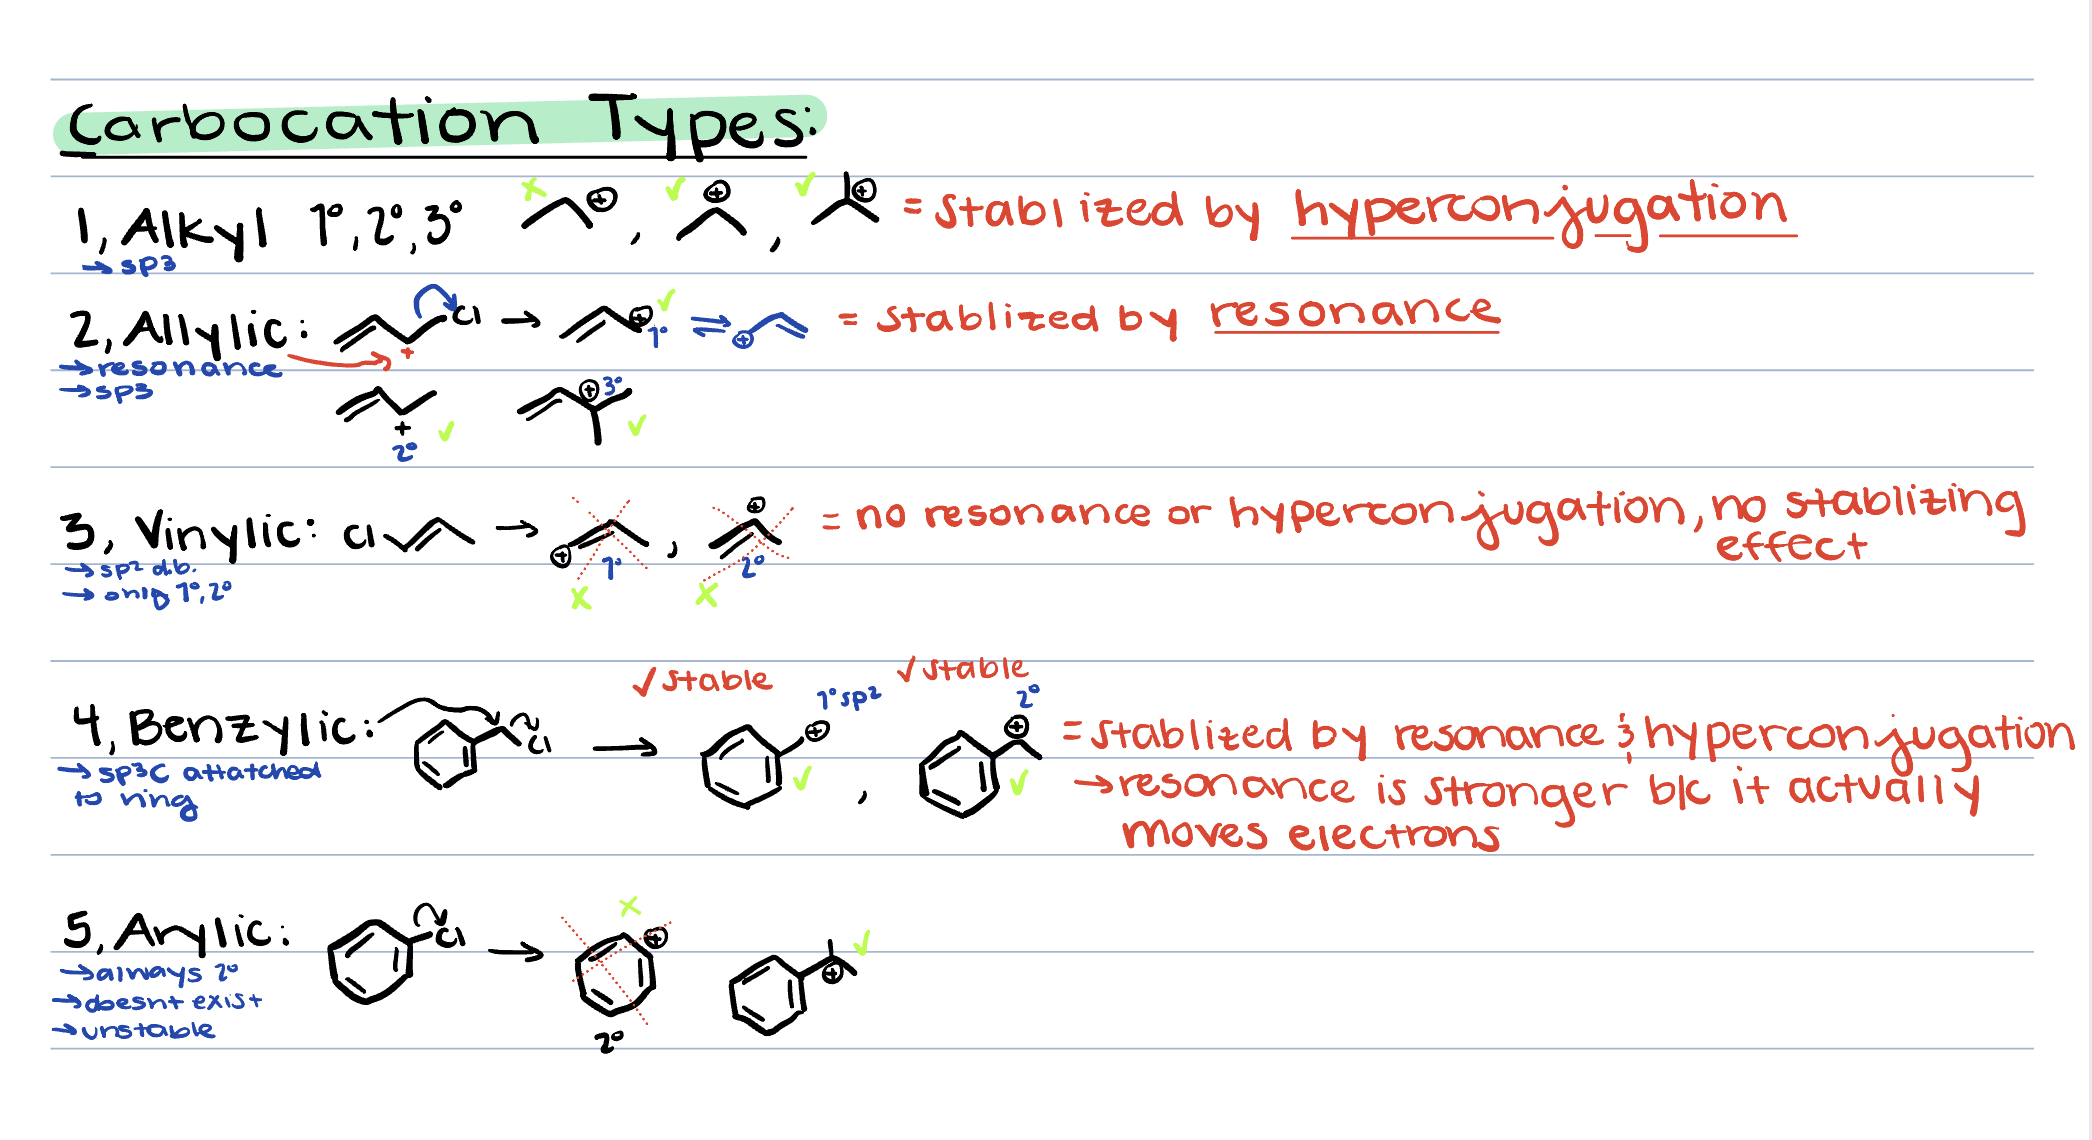 Carbocation Types:
1, Alkyl 1°, 2°, 3° x ⊕ , ✓ ⊕ , ✓ ⊕ = stablized by hyperconjugation
→ sp3
2, Allylic: Cl → ⊕ 1° ✓ ⇌ ⊕ = stablized by resonance
→ resonance +
→ sp3
+ 2° ✓ ⊕ 3° ✓
3, Vinylic: Cl → ⊕ 1° x , ⊕ 2° x = no resonance or hyperconjugation, no stablizing
effect
→ sp² d.b.
→ only 1°, 2°
✓ stable ✓ stable
4, Benzylic: Cl → ⊕ 1° sp² ✓ , ⊕ 2° ✓ = stablized by resonance & hyperconjugation
→ sp³C attatched
to ring
→ resonance is stronger b/c it actually
moves electrons
5, Arylic: Cl → x ⊕ 2° ⊕ ✓
→ always 2°
→ doesnt exist
→ unstable